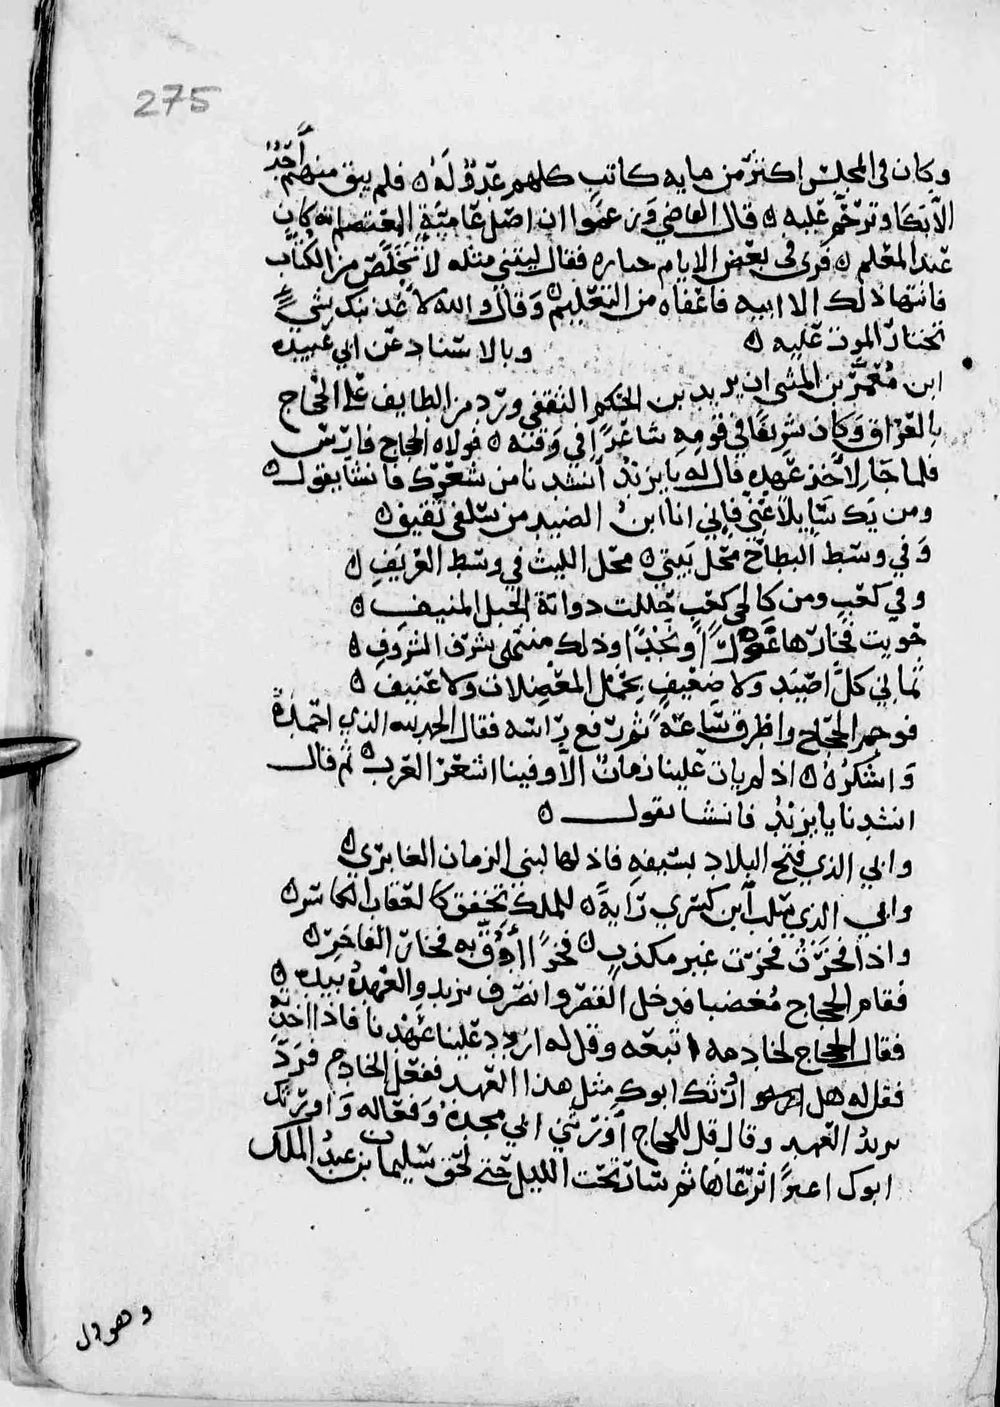 275
وكان في المجلس اكثر من مايه كاتب كلهم عدوٌّ لهُ ه فلم يبق منهم أحدٌ
الا بكا وترحّم عليه ه قال القاضي وزعموا ان اصل عاميَّة المعتصم انه كان
عند المعلم ه فرى في بعض الايام جنازه فقال ليتني مثله لأتخلّص من الكُتّاب
فانتها ذلك الا ابيه فاعفاه من التعليم ه وقال والله لا عذبتك بشيءٍ
تختار الموت عليه ه وبالاسناد عن ابي عبيدة
ابن مُعَمَّر بن المثنى ان يزيد بن الحكم الثقفي ورد من الطايف على الحجاج
بالعراق وكان شريفًا في قومه شاعرًا في وقته ه فولاه الحجاج فارس
فلما جا لاخذ عهده قال له يا يزيدُ أنشدنا من شعرك فانشا يقول ه
ومن يك سايلا عني فإني انا ابنُ الصيد من سلفي ثقيف ه
وَفي وسط البطاح محل بيتي ه محل الليث في وسط الغريف ه
وفي كعب ومن كالحي كعب حللت دوابة الجبل المنيف ه
حويت فخارها غورًا ونجدًا وذلك منتهى شرف الشروف ه
نماني كل اصيد ولا ضعيف بحمل المعضلات ولا عنيف ه
فوجم الحجاج واطرق ساعة ثم رفع راسه فقال الحمد لله الذي احمدهُ
وَاشكرُهُ ه اذ لم يات علينا زمان الا وفينا اشعر العرب ه ثم قال
انشدنا يا يزيدُ فانشا يقول ه
وابي الذي فتح البلاد بسيفه فاذلها لبني الزمان الغابري ه
وابي الذي سلب ابن كسري رايةً ه للملك تخفق كالعقاب الكاسر ه
واذا فخرتُ فخرت غير مكذب ه فخرًا أدقُّ به فخار الفاخر ه
فقام الحجاج مُغضبا فدخل القصر وانصرف يزيد والعهدُ بيده ه
فقال الحجاج لخادمه اتبعه وقل له اردد علينا عهدنا فاذا اخذته
فقل له هل اورثك ابوك مثل هذا العهد ففعل الخادم فردّ
يزيدُ العهد وقال قل للحجاج أورثني ابي مجدهُ وَفعاله وَاورثك
ابوك اعنزًا ترعاها ثم سار تحت الليل حتى لحق سليمان بن عبدُ الملك
وهو ول